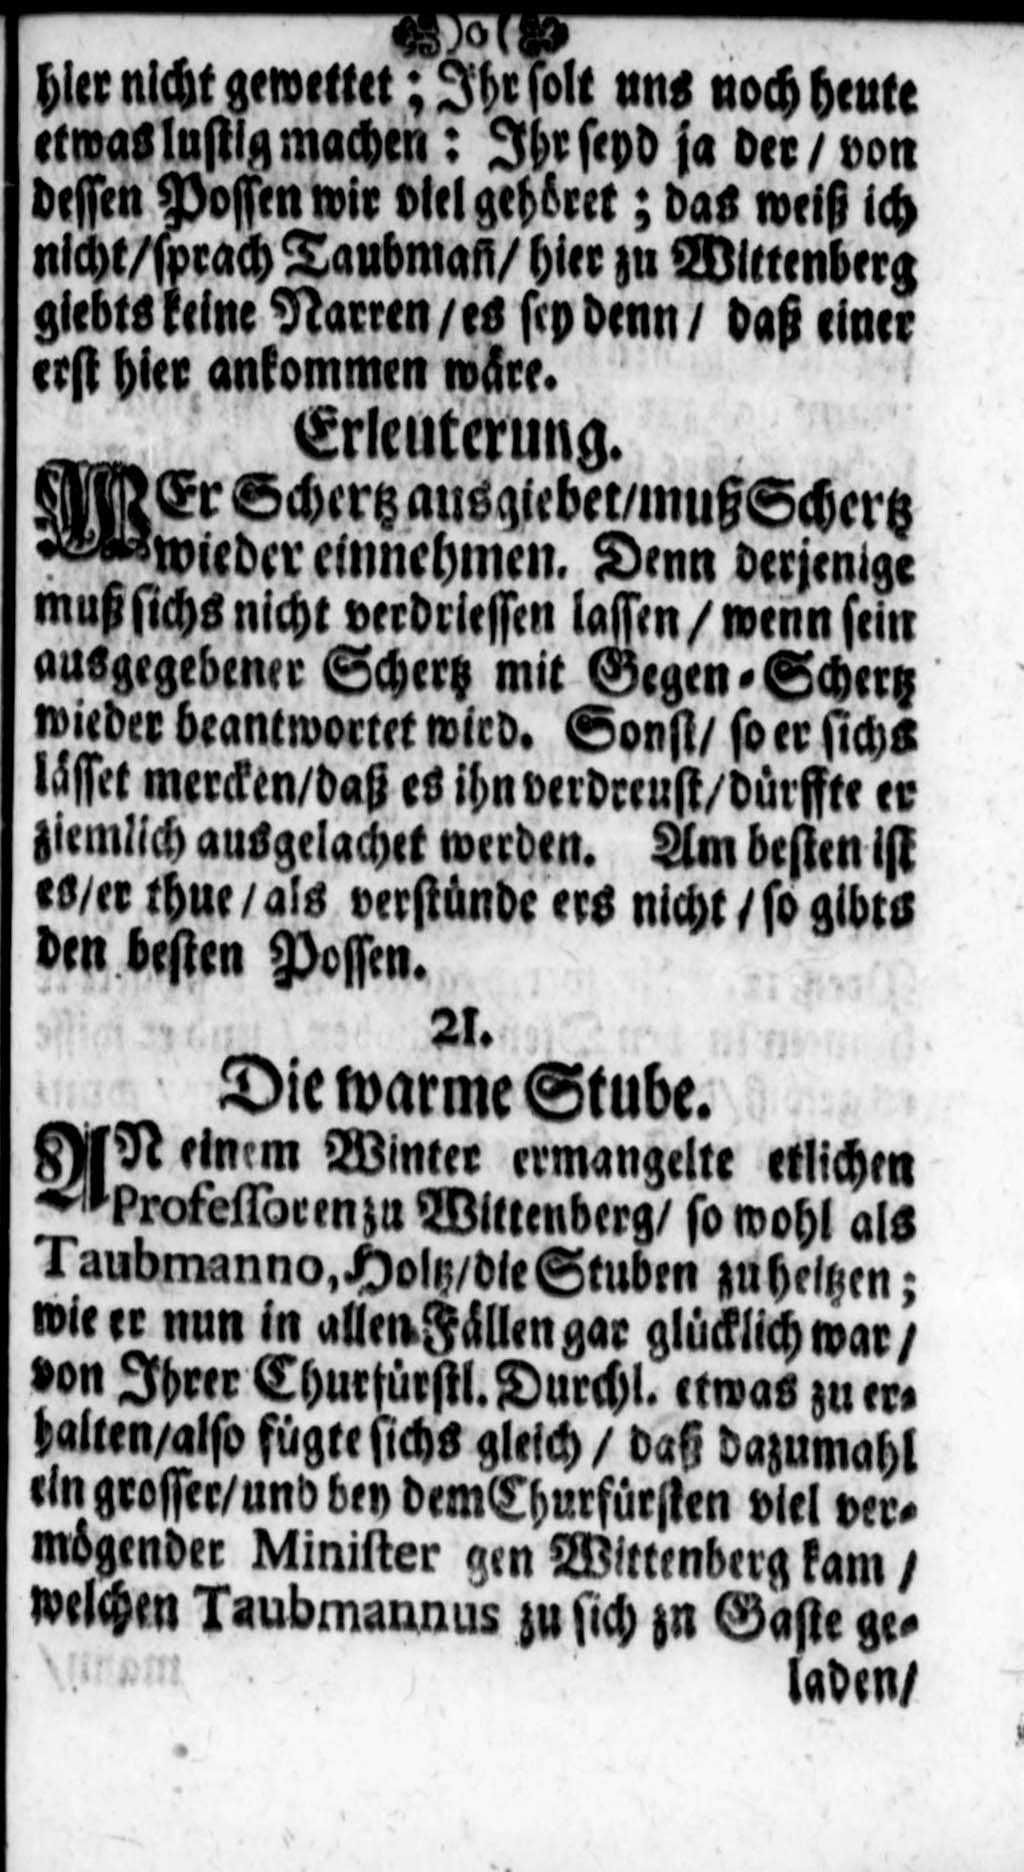 )o(
hier nicht gewettet; Ihr solt uns noch heute
etwas lustig machen: Ihr seyd ja der / von
dessen Possen wir viel gehöret; das weiß ich
nicht/sprach Taubmañ/ hier zu Wittenberg
giebts keine Narren/es sey denn/ daß einer
erst hier ankommen wäre.
Erleuterung.
WEr Schertz ausgiebet/muß Schertz
wieder einnehmen. Denn derjenige
muß sichs nicht verdriessen lassen / wenn sein
ausgegebener Schertz mit Gegen-Schertz
wieder beantwortet wird. Sonst/ so er sichs
lässet mercken/daß es ihn verdreust/dürffte er
ziemlich ausgelachet werden. Am besten ist
es/er thue/als verstünde ers nicht/so gibts
den besten Possen.
21.
Die warme Stube.
AN einem Winter ermangelte etlichen
Professoren zu Wittenberg/ so wohl als
Taubmanno, Holtz/die Stuben zu heitzen;
wie er nun in allen Fällen gar glücklich war/
von Ihrer Churfürstl. Durchl. etwas zu er-
halten/also fügte sichs gleich / daß dazumahl
ein grosser/und bey dem Churfürsten viel ver-
mögender Minister gen Wittenberg kam /
welchen Taubmannus zu sich zn Gaste ge-
laden/